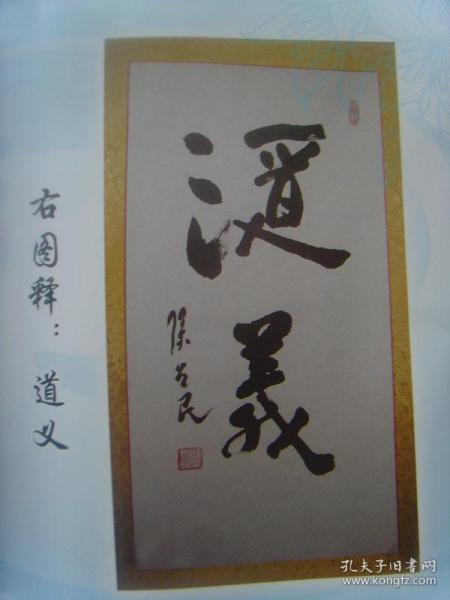 右图释：道义
道
義
民
孔夫子旧书网
www.kongfz.com